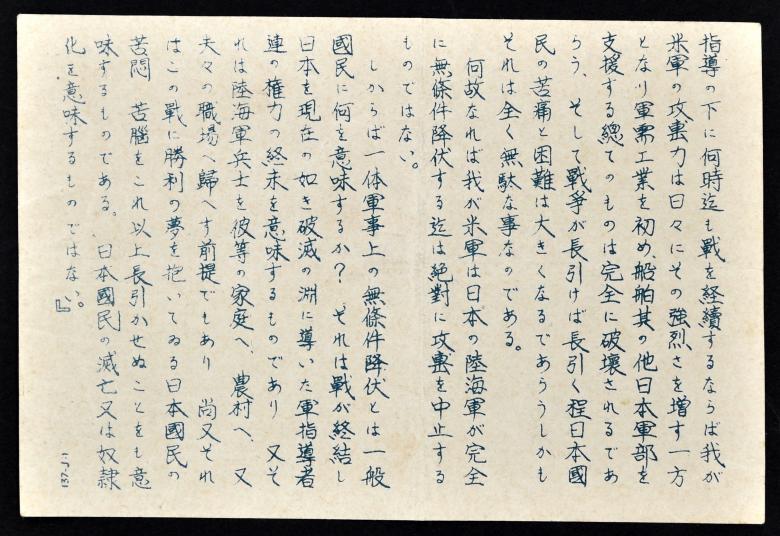 指導の下に何時迄も戰を経續するならば我が
米軍の攻撃力は日々にその強烈さを増す一方
となり軍需工業を初め、船舶其の他日本軍部を
支援する總てのものは完全に破壊されるであ
らう、そして戰爭が長引けば長引く程日本國
民の苦痛と困難は大きくなるであらうしかも
それは全く無駄な事なのである。
何故なれば我が米軍は日本の陸海軍が完全
に無條件降伏する迄は絶對に攻撃を中止する
ものではない。
しからば一体軍事上の無條件降伏とは一般
國民に何を意味するか？ それは戰が終結し
日本を現在の如き破滅の淵に導いた軍指導者
連の権力の終末を意味するものであり 又そ
れは陸海軍兵士を彼等の家庭へ、農村へ、又
夫々の職場へ歸へす前提でもあり 尚又それ
はこの戰に勝利の夢を抱いてゐる日本國民の
苦悶 苦腦をこれ以上長引かせぬことをも意
味するものである。 日本國民の滅亡又は奴隷
化を意味するものではない。』
137-J-1